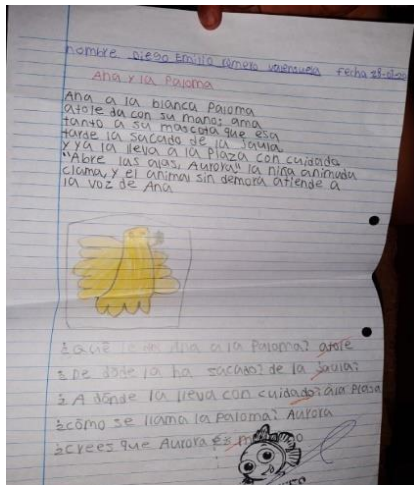 nombre Diego Emilio Romero Valensuela fecha
Ana y la Paloma
Ana a la blanca Paloma
atole da con su mano; ama
tanto a su mascota que esa
tarde la sacado de la Jaula
y ya la lleva a la Plaza con cuidado
"Abre las alas, Aurora" la niña animada
clama, y el animal sin demora atiende a
la voz de Ana
¿Qué Ana a la Paloma? atole
¿De dónde la ha sacado? de la Jaula
¿A dónde la lleva con cuidado? a la Plasa
¿cómo se llama la Paloma? Aurora
¿crees que Aurora es